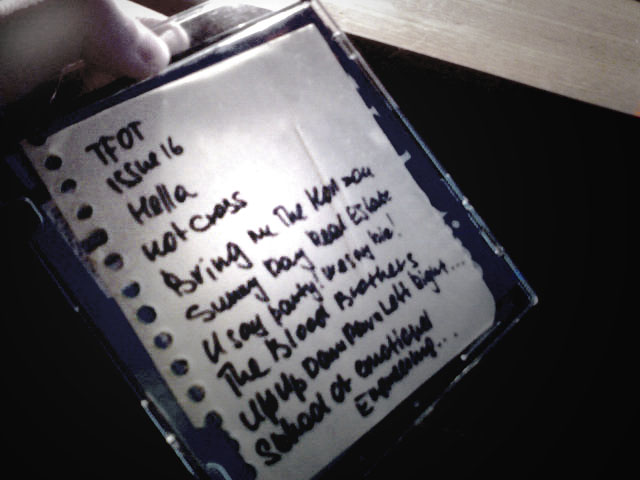 TFOT
ISSue 16
Hella
Hot Cross
Bring me The Horizon
Sunny Day Real Estate
U say party! we say die!
The Blood Brothers
Up Up Down Down Left Right...
School of emotional
Engineering...